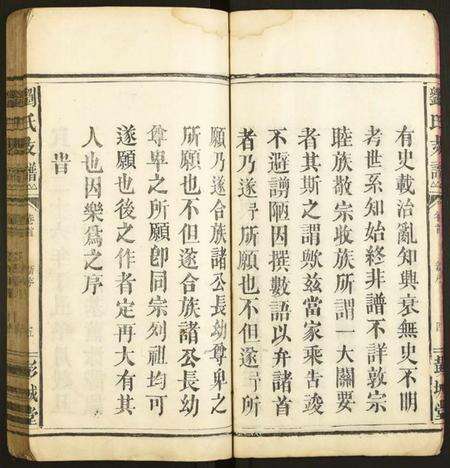 劉氏支譜
卷首
彭城堂
有史載治亂知興衰無史不明
考世系知始終非譜不詳敦宗
睦族散宗收族所謂一大關要
者其斯之謂歟茲當家乘告竣
不避謭陋因撰數語以弁諸首
者乃遂所願也不但遂所
願乃遂合族諸公長幼尊卑之
所願也不但遂合族諸公長幼
尊卑之所願卽同宗列祖均可
遂願也後之作者定再大有其
人也因樂爲之序
旹
劉氏支譜
卷首
五
彭城堂